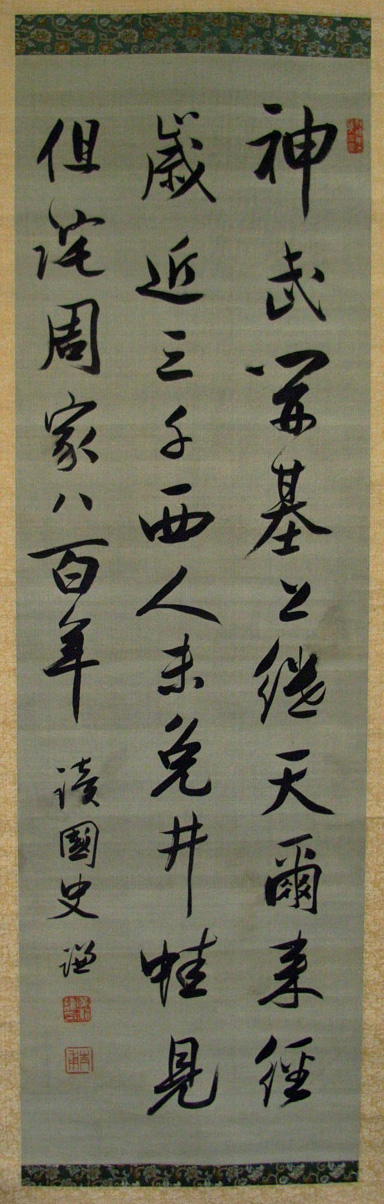 神武開基上繼天爾来經
歳近三千西人未免井蛙見
但詫周家八百年
讀國史 謙